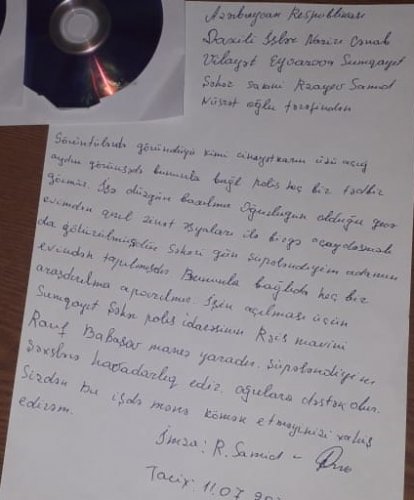 Azərbaycan Respublikası
Daxili İşlər Naziri Cənab
Vilayət Eyvazov Sumqayıt
Şəhər sakini Rzayev Samid
Nüsrət oğlu tərəfindən
Görüntülərdə göründüyü kimi cinayətkarın üzü açıq
aydın görünsədə bununla bağlı polis heç bir tədbir
görmür. İşə düzgün baxılmır Oğurluğun olduğu gecə
evimdən qızıl zinət əşyaları ilə birgə
da götürülmüşdür Səhəri gün şübhələndiyim adamın
evindən tapılmışdır Bununla bağlıda heç bir
araşdırılma aparılmır. İşin açılması üçün
Sumqayıt Şəhər polis idarəsinin Rəis mavini
Rauf Babaşov maneə yaradır. Şübhələndiyim
şəxslərə havadarlıq edir. oğrulara dəstək olur.
Sizdən bu işdə mənə kömək etməyinizi xahiş
edirəm.
İmza: R. Samid -
Tarix: 11.07